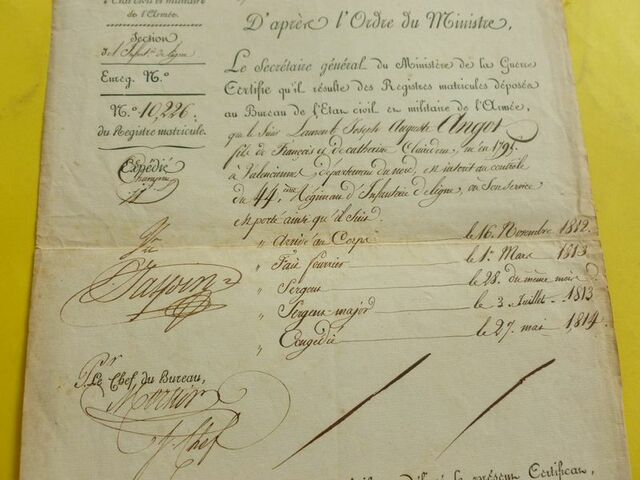 Etat civil et militaire
de l'Armée.
Section
d'Infanterie de ligne
Enreg. N.º
N.º 10,226.
du Registre matricule.
Expédié
Vu
P.r Le Chef, du Bureau,
Chef
D'après l'Ordre du Ministre,
Le Secrétaire général du Ministère de la Guerre
Certifie qu'il résulte des Registres matricules déposés
au Bureau de l'Etat civil et militaire de l'Armée,
que le Sieur Laurent Joseph Auguste Angot
fils de François et de Catherine né en 1795
à Valenciennes, département du nord, est inscrit au contrôle
du 44.eme Régiment d'Infanterie de ligne, où Son service
est porté ainsi qu'il Suit.
" Arrivé au Corps le 16. Novembre 1812.
" Fait fourrier le 1.er Mars 1813
" Sergent le 28. du même mois
" Sergent major le 3 Juillet 1813
" Congédié le 27. mai 1814.
délivré le présent Certificat,